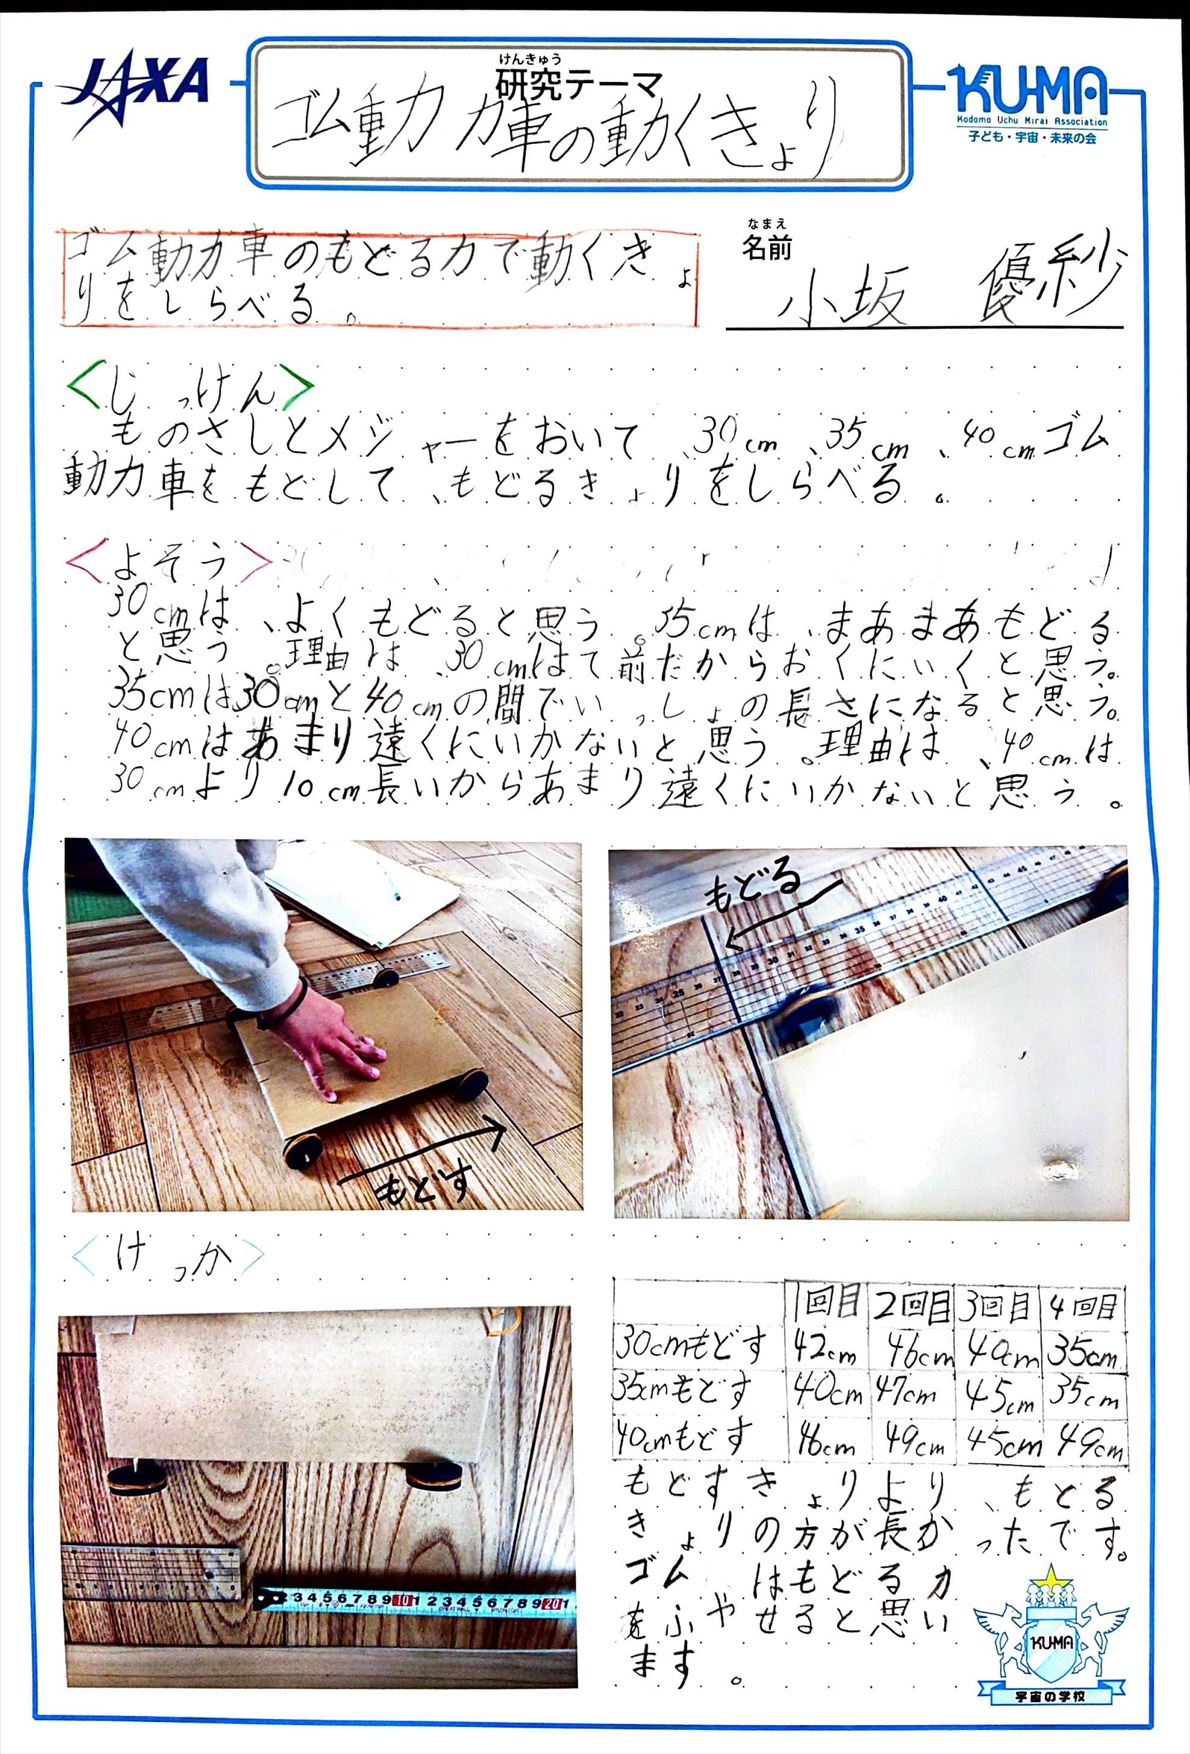 JAXA
けんきゅう
研究テーマ
ゴム動力車の動くきょり
KU-MA
Kodomo Uchu Mirai Association
子ども・宇宙・未来の会
ゴム動力車のもどる力で動くきょ
りをしらべる。
なまえ
名前
小坂 優紗
<じっけん>
ものさしとメジャーをおいて、30cm、35cm、40cmゴム
動力車をもどして、もどるきょりをしらべる。
<よそう>
30cmは、よくもどると思う。35cmは、まあまあもどる
と思う。理由は、30cmはて前だからおくにいくと思う。
35cmは30cmと40cmの間でいっしょの長さになると思う。
40cmはあまり遠くにいかないと思う。理由は、40cmは
30cmより10cm長いからあまり遠くにいかないと思う。
もどす
もどる
<けっか>
1回目 2回目 3回目 4回目
30cmもどす 42cm 46cm 40cm 35cm
35cmもどす 40cm 47cm 45cm 35cm
40cmもどす 46cm 49cm 45cm 49cm
もどすきょりより、もとる
きょりの方が長かったです。
ゴムはもどる力
をふやせると思い
ます。
KU-MA
宇宙の学校